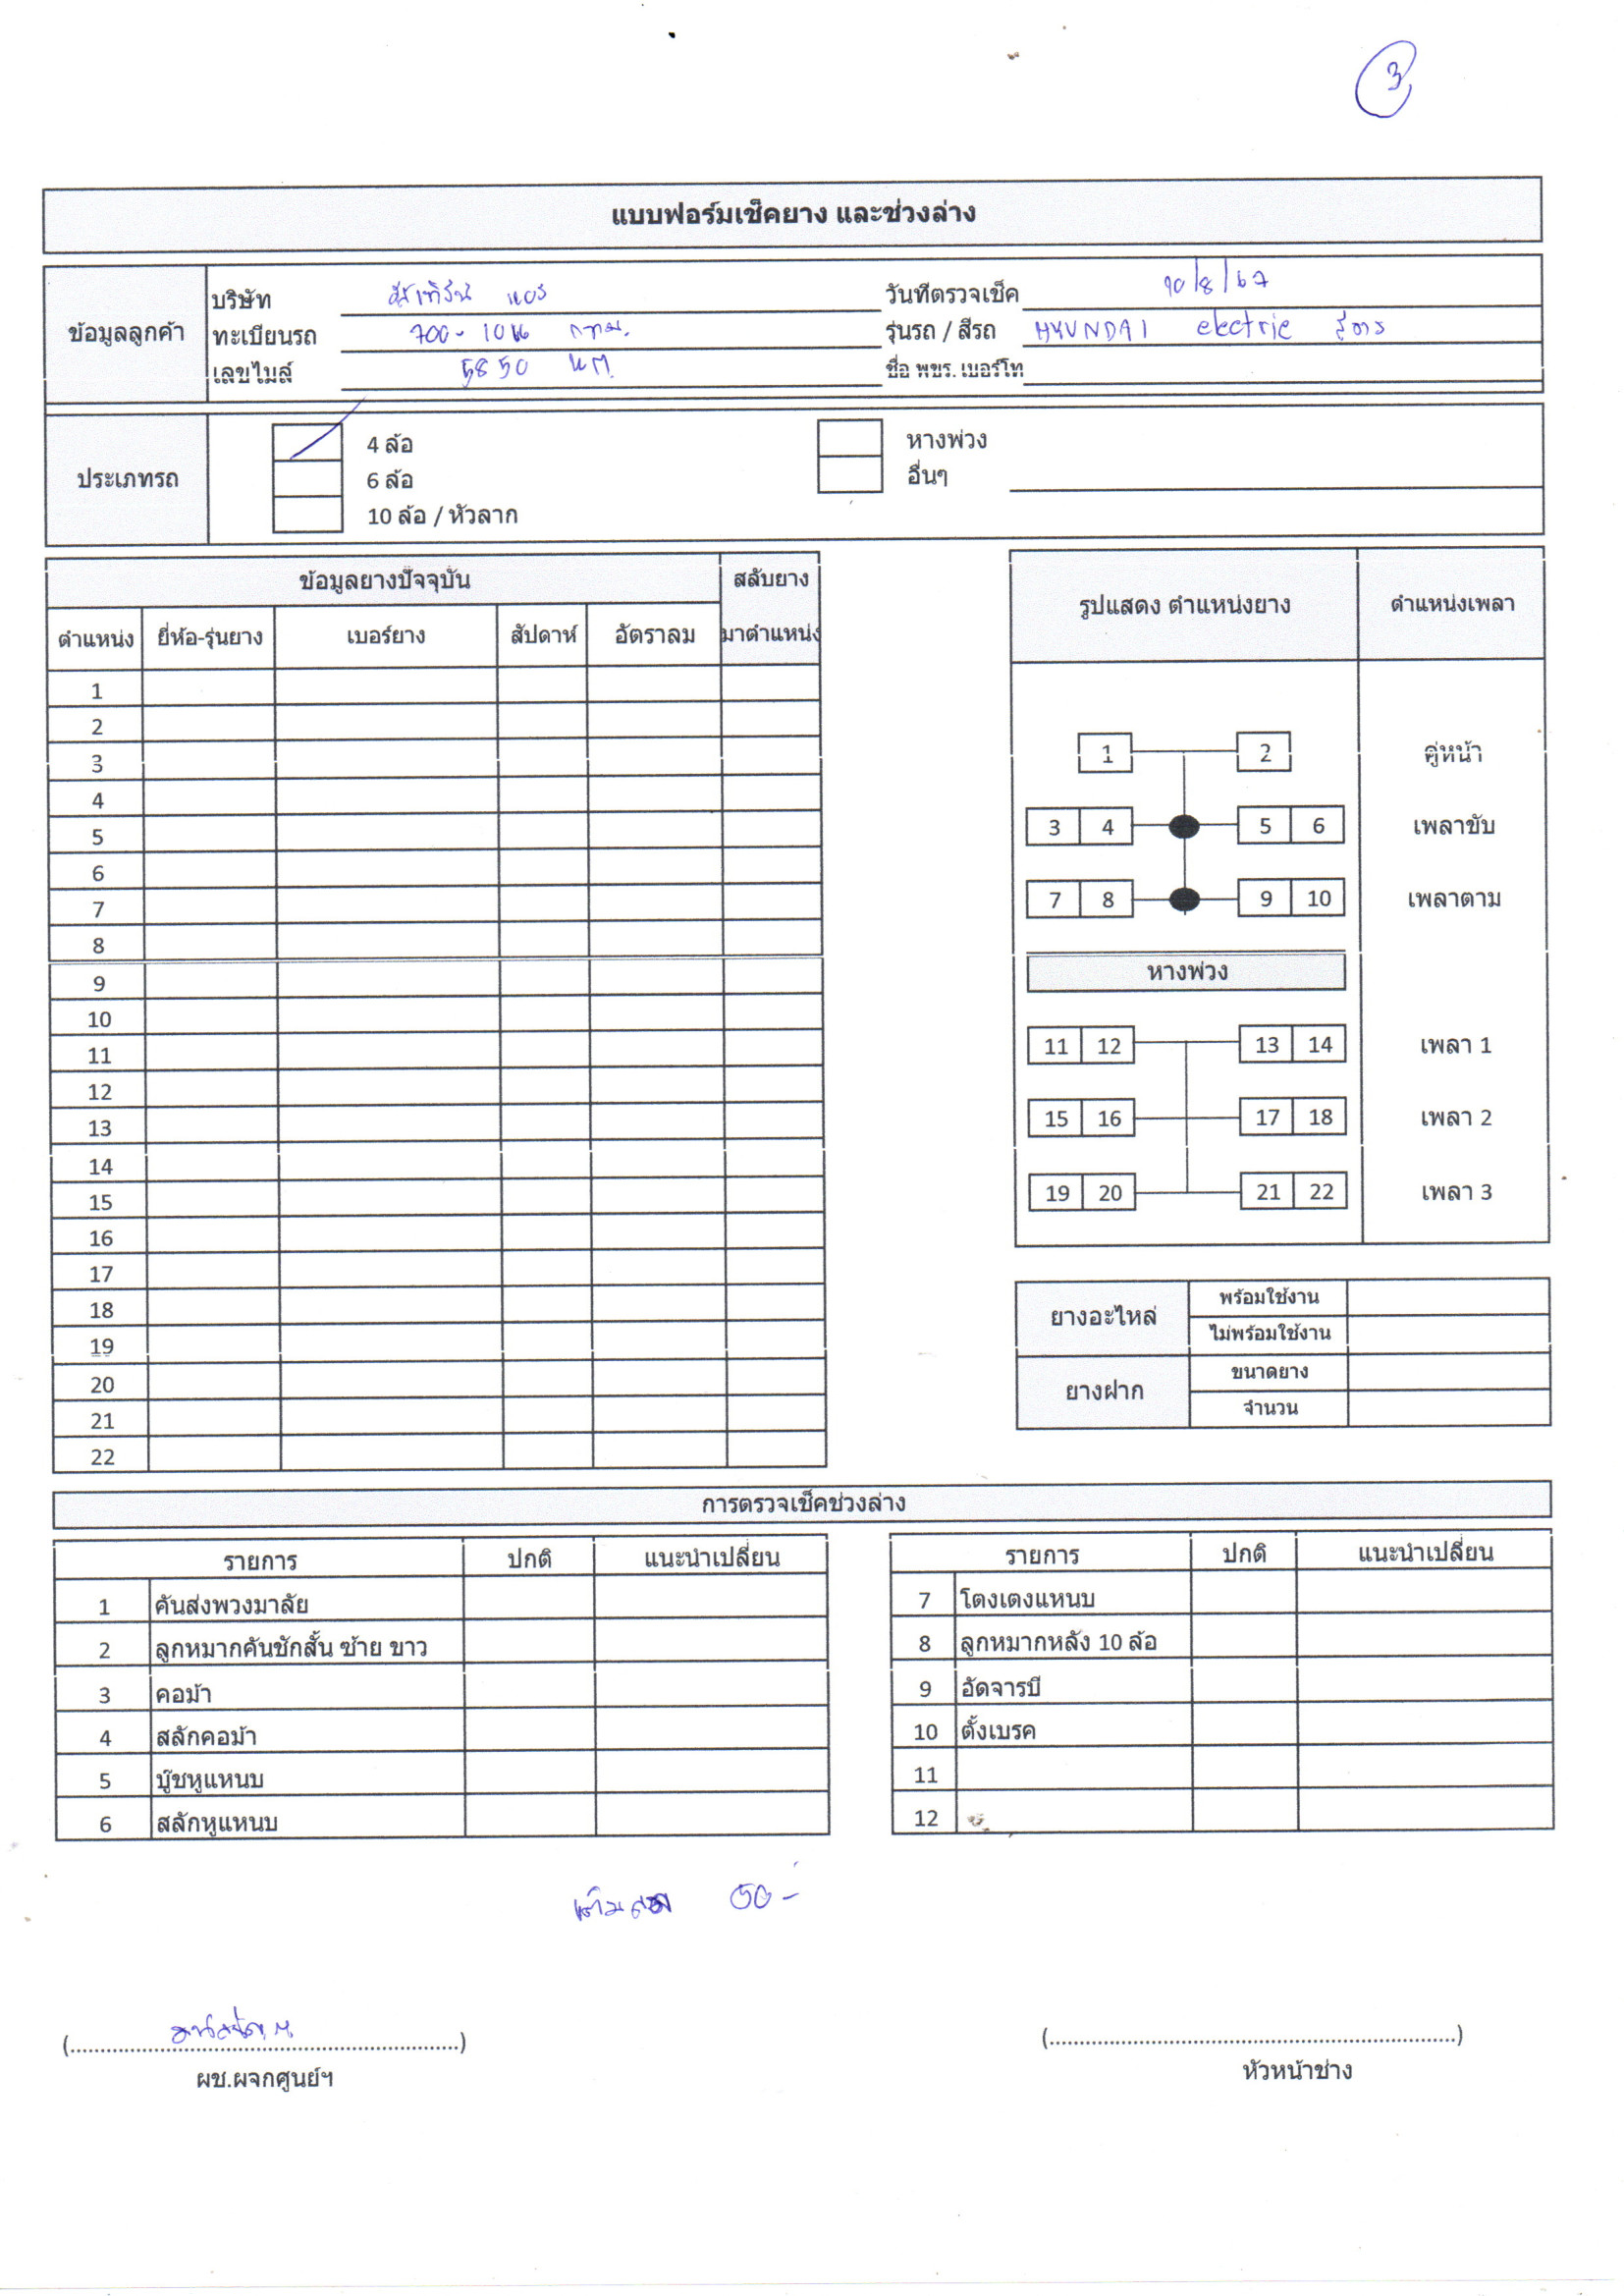 3
แบบฟอร์มเช็คยาง และช่วงล่าง
ข้อมูลลูกค้า
บริษัท
วันที่ตรวจเช็ค
ทะเบียนรถ 700-10 กทม.
รุ่นรถ / สีรถ HYUNDAI electric
เลขไมล์ 5850
ชื่อ พขร. เบอร์โท
ประเภทรถ
4 ล้อ
6 ล้อ
10 ล้อ / หัวลาก
หางพ่วง
อื่นๆ
ข้อมูลยางปัจจุบัน สลับยาง
ตำแหน่ง ยี่ห้อ-รุ่นยาง เบอร์ยาง สัปดาห์ อัตราลม มาตำแหน่ง
1
2
3
4
5
6
7
8
9
10
11
12
13
14
15
16
17
18
19
20
21
22
รูปแสดง ตำแหน่งยาง ตำแหน่งเพลา
1 2 คู่หน้า
3 4 5 6 เพลาขับ
7 8 9 10 เพลาตาม
หางพ่วง
11 12 13 14 เพลา 1
15 16 17 18 เพลา 2
19 20 21 22 เพลา 3
ยางอะไหล่ พร้อมใช้งาน
ไม่พร้อมใช้งาน
ยางฝาก ขนาดยาง
จำนวน
การตรวจเช็คช่วงล่าง
รายการ ปกติ แนะนำเปลี่ยน
1 คันส่งพวงมาลัย
2 ลูกหมากคันชักสั้น ซ้าย ขาว
3 คอม้า
4 สลักคอม้า
5 บู๊ชหูแหนบ
6 สลักหูแหนบ
รายการ ปกติ แนะนำเปลี่ยน
7 โตงเตงแหนบ
8 ลูกหมากหลัง 10 ล้อ
9 อัดจารบี
10 ตั้งเบรค
11
12
เติมลม 50-
(................................................................)
ผช.ผจกศูนย์ฯ
(................................................................)
หัวหน้าช่าง